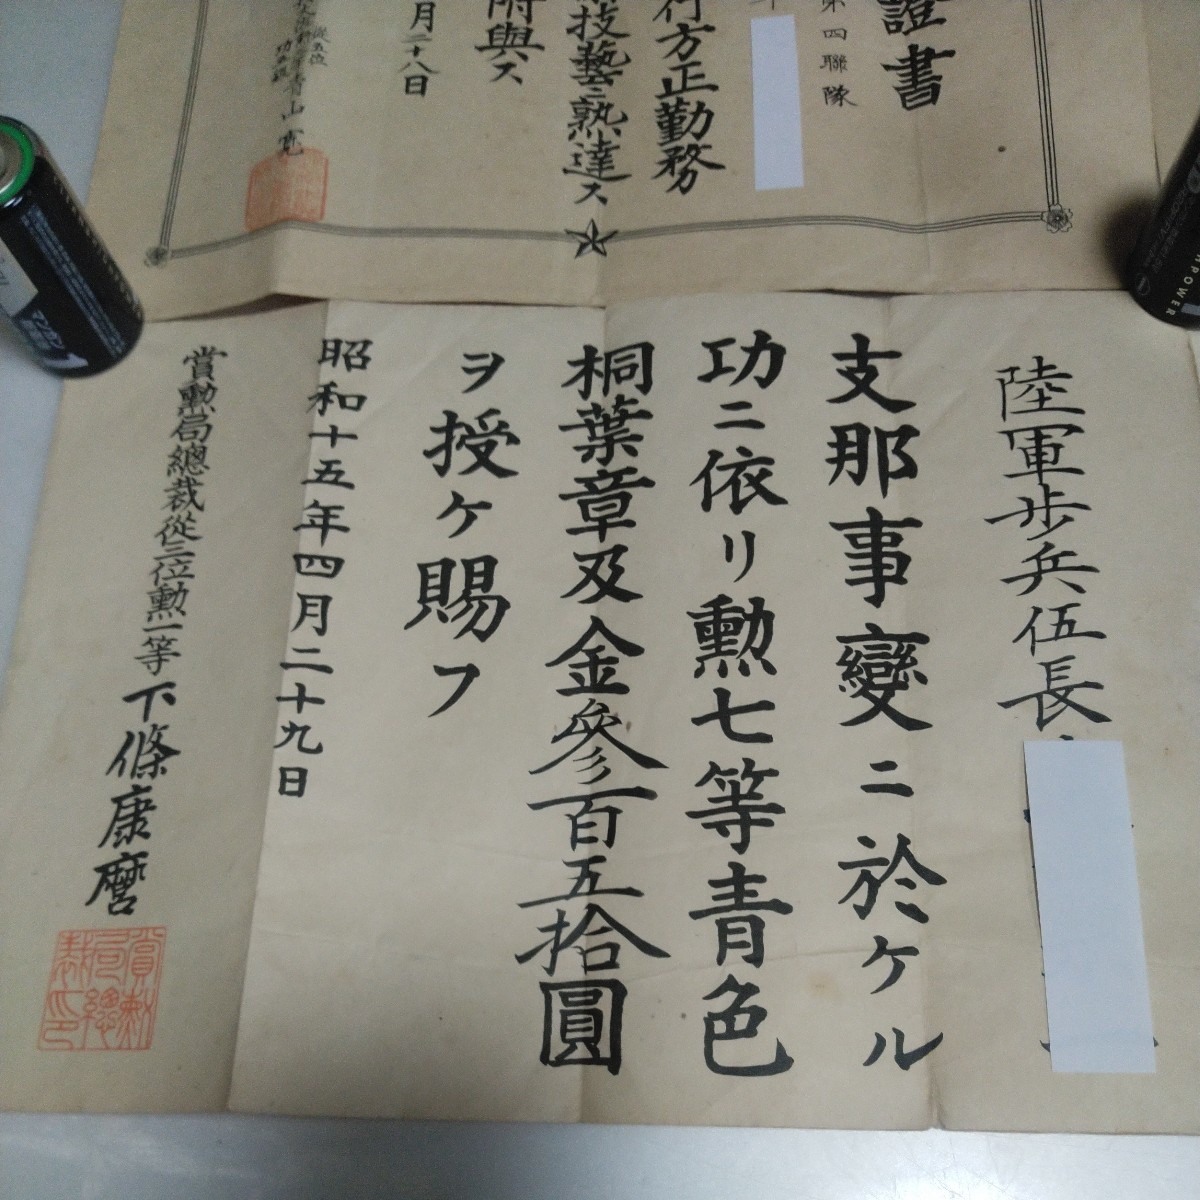 證書
第四聯隊
行方正勤務
技藝ニ熟達ス
附與ス
月二十八日
從五位
山寛
陸軍歩兵伍長
支那事變ニ於ケル
功ニ依リ勲七等青色
桐葉章及金參百五拾圓
ヲ授ケ賜フ
昭和十五年四月二十九日
賞勲局總裁從三位勲一等下條康麿
賞勲局總裁印
マンガン
POWER